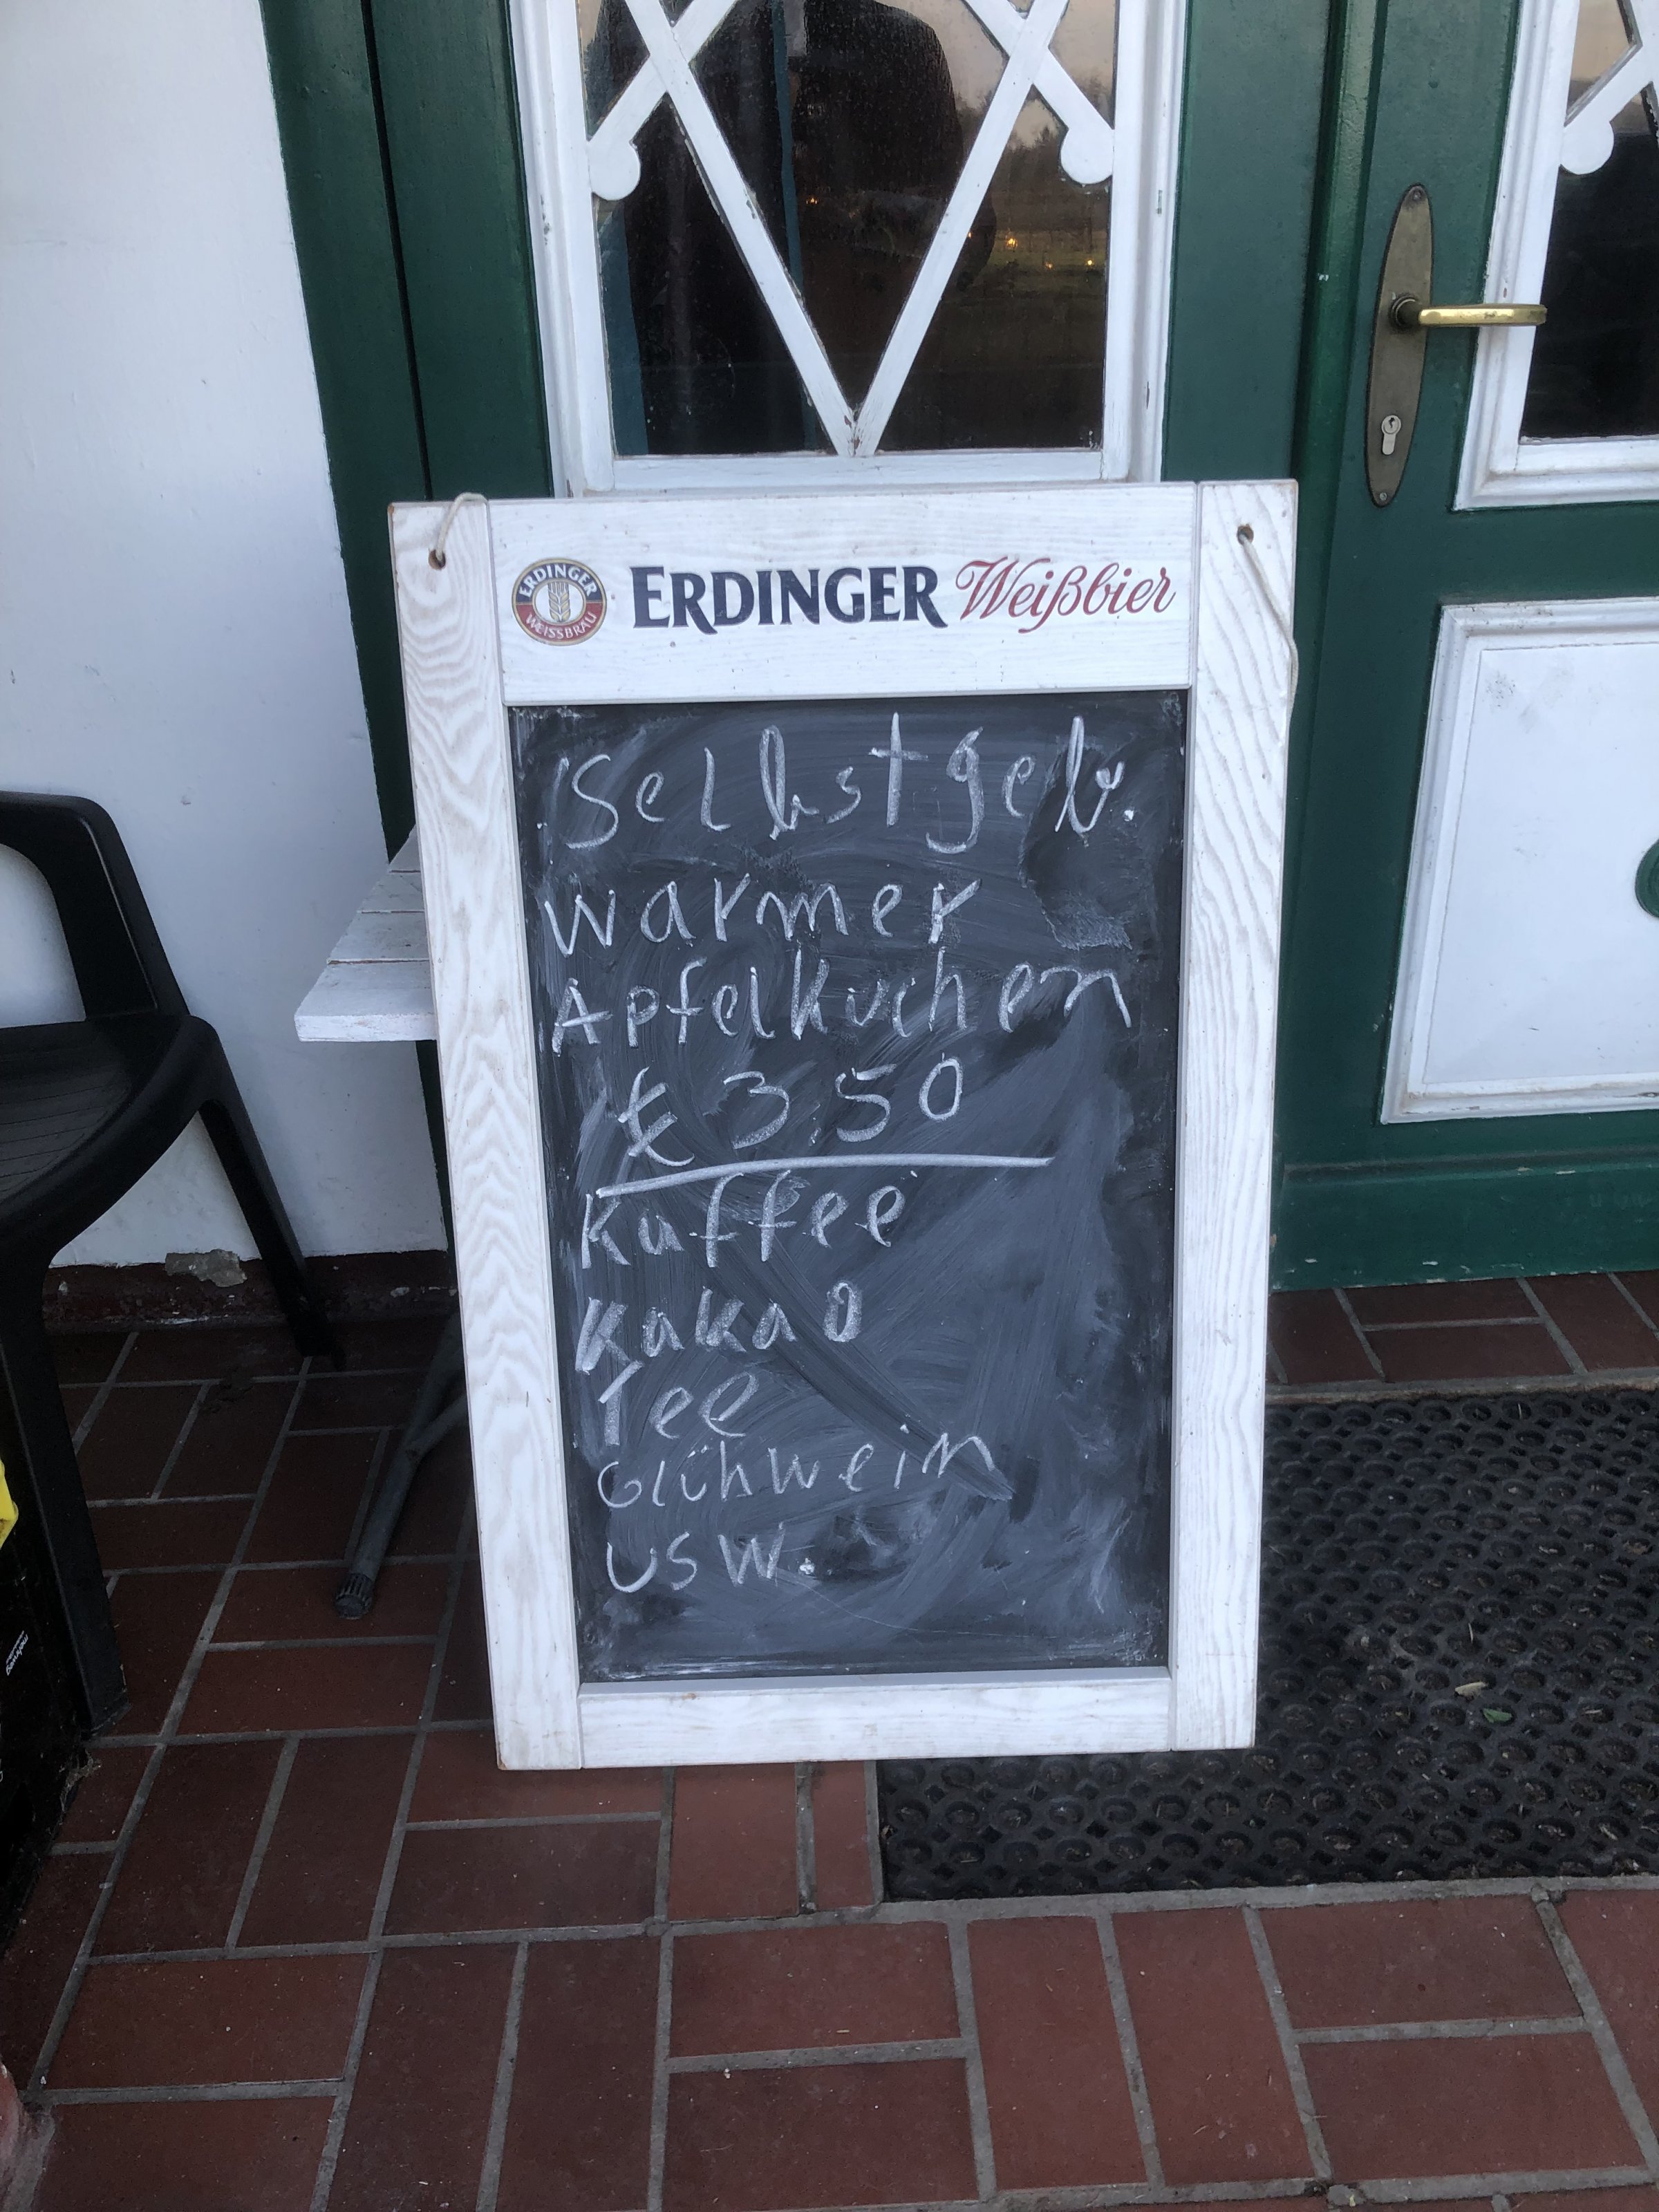 ERDINGER WEISSBRÄU
ERDINGER Weißbier
Selbstgeb.
warmer
Apfelkuchen
€ 3.50
Kaffee
Kakao
Tee
Glühwein
usw.